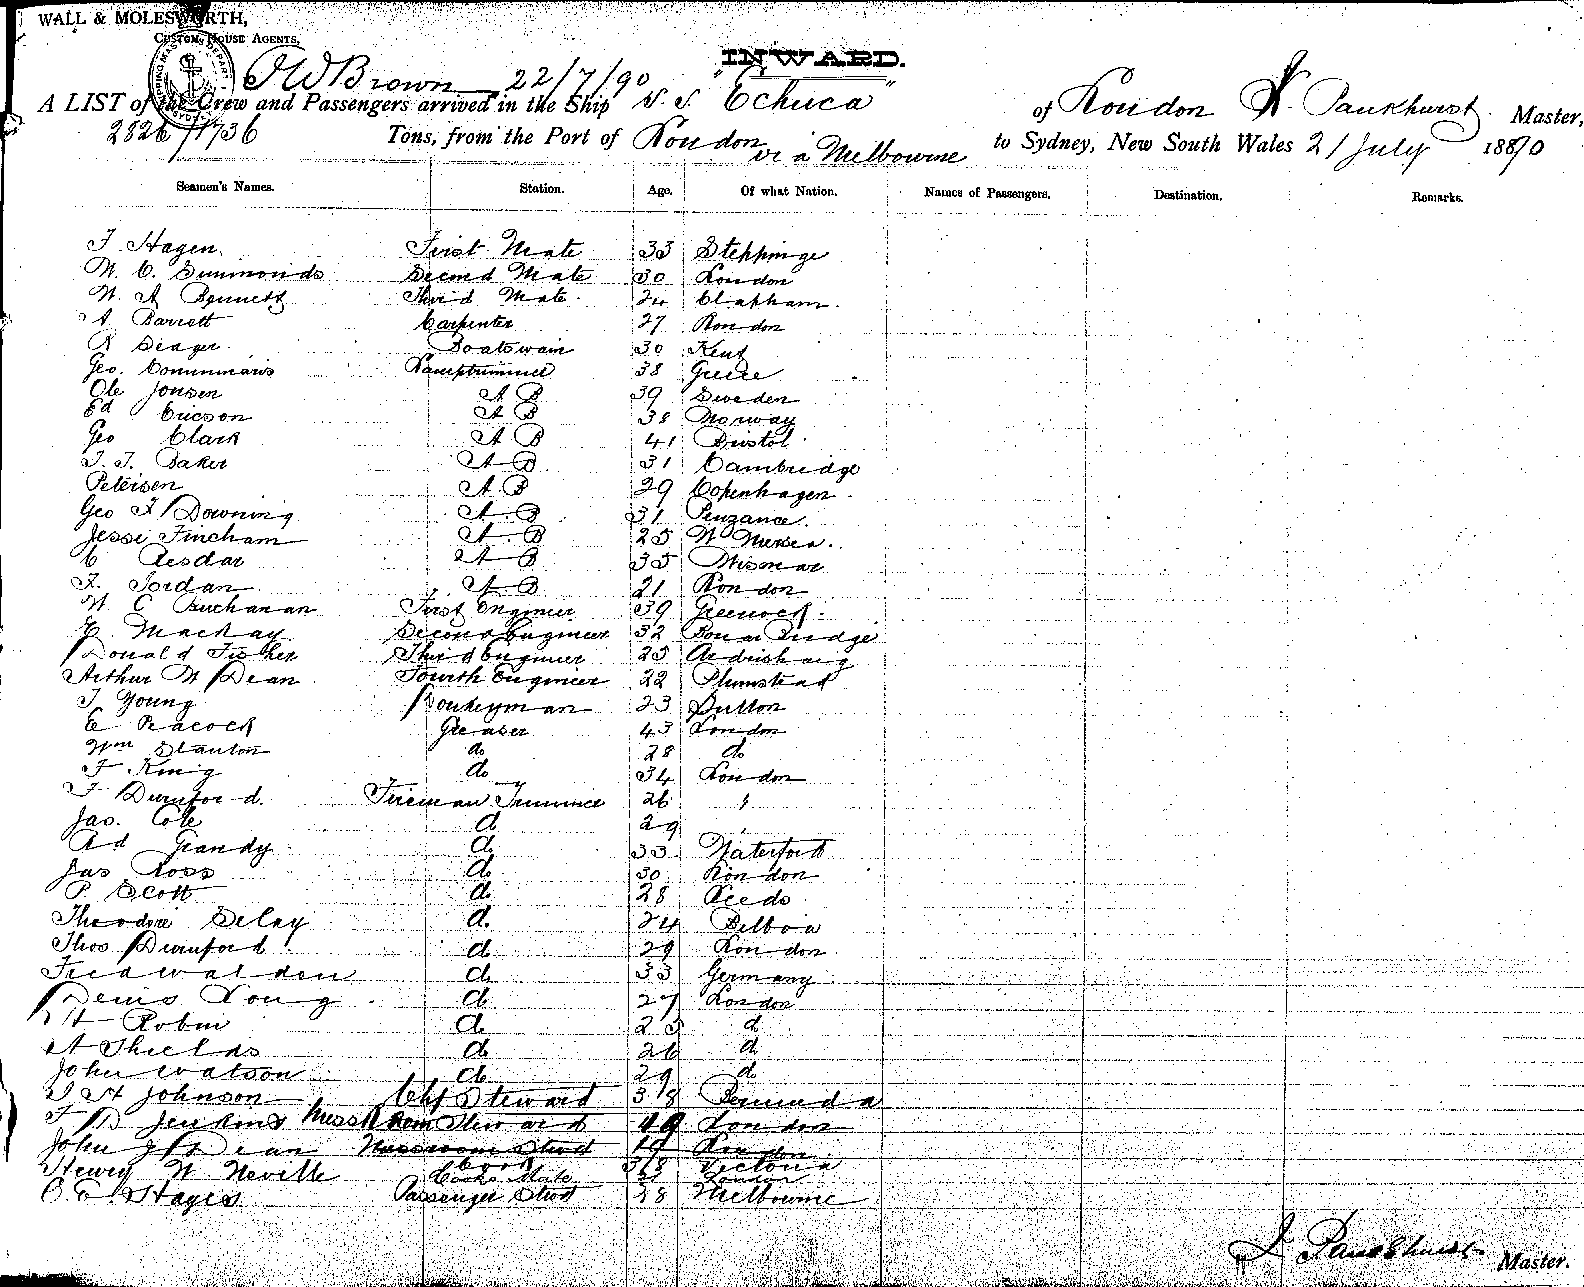 WALL & MOLESWORTH,
CUSTOM HOUSE AGENTS,
INWARD.
Brown 22/7/90
A LIST of the Crew and Passengers arrived in the Ship S. S. "Echuca" of London Pankhurst Master,
2826/1736 Tons, from the Port of London via Melbourne to Sydney, New South Wales 21 July 1890
Seamen's Names. Station. Age. Of what Nation. Names of Passengers. Destination. Remarks.
Hagen First Mate 33
Second Mate 30 London
W. A Bennett Third Mate 24 Clapham
A Barrett Carpenter 27 London
Boatswain 30 Kent
Geo. Lamptrimmer 38 Greece
Ole Jonsen A B 39 Sweden
Ed Ericson A B 38 Norway
Geo Clark A B 41 Bristol
Baker A B 31 Cambridge
Petersen A B 29 Copenhagen
Geo Downing A B 31 Penzance
Jesse Fincham A B 25 W Mersea
A B 35 Wismar
Jordan A B 21 London
W C Buchanan First Engineer 39 Greenock
Mackay Second Engineer 32 Bonar Bridge
Donald Fisher Third Engineer 25 Ardrishaig
Arthur W Dean Fourth Engineer 22 Plumstead
Young Donkeyman 23 Sutton
E Peacock Greaser 43 London
Wm Stanton do 28 do
King do 34 London
Durnford Fireman Trimmer 26 "
Jas. Cole do 29
Grandy do 33 Waterford
Jas Ross do 30 London
P Scott do 28 Leeds
Theodore do 24 Bilboa
Thos Durnford do 29 London
Fred Walden do 33 Germany
Denis Long do 27 London
Robin do 25 do
A Shields do 26 do
John Watson do 29 do
Johnson Chf Steward 38 Bermuda
Jenkins Messroom Steward London
John Dean Messroom Stwd 19 London
Cook 38 Victoria
Henry W Neville Cooks Mate London
Hayes Passenger Stwd 28 Melbourne
Pankhurst Master.